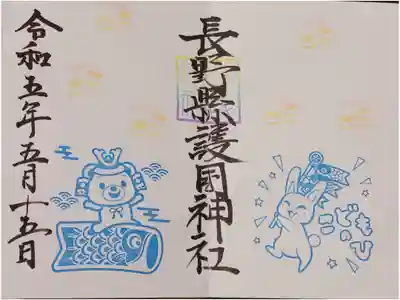 こどものひ
長野縣護国神社
令和五年五月十五日